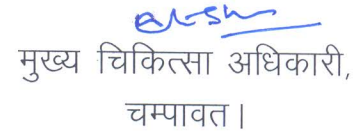 मुख्य चिकित्सा अधिकारी,
चम्पावत।